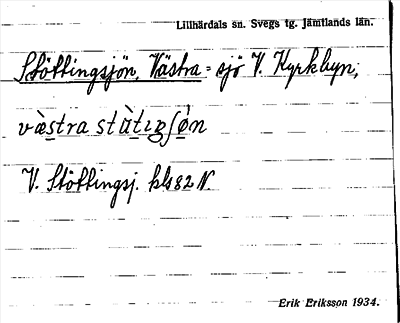 Lillhärdals sn. Svegs tg. Jämtlands län.
Stöttingsjön, Västra = sjö V. Kyrkbyn;
væ̀stra stʉ̀tıgʃøn
V. Stöttingsj. kbl 82 N.
Erik Eriksson 1934.